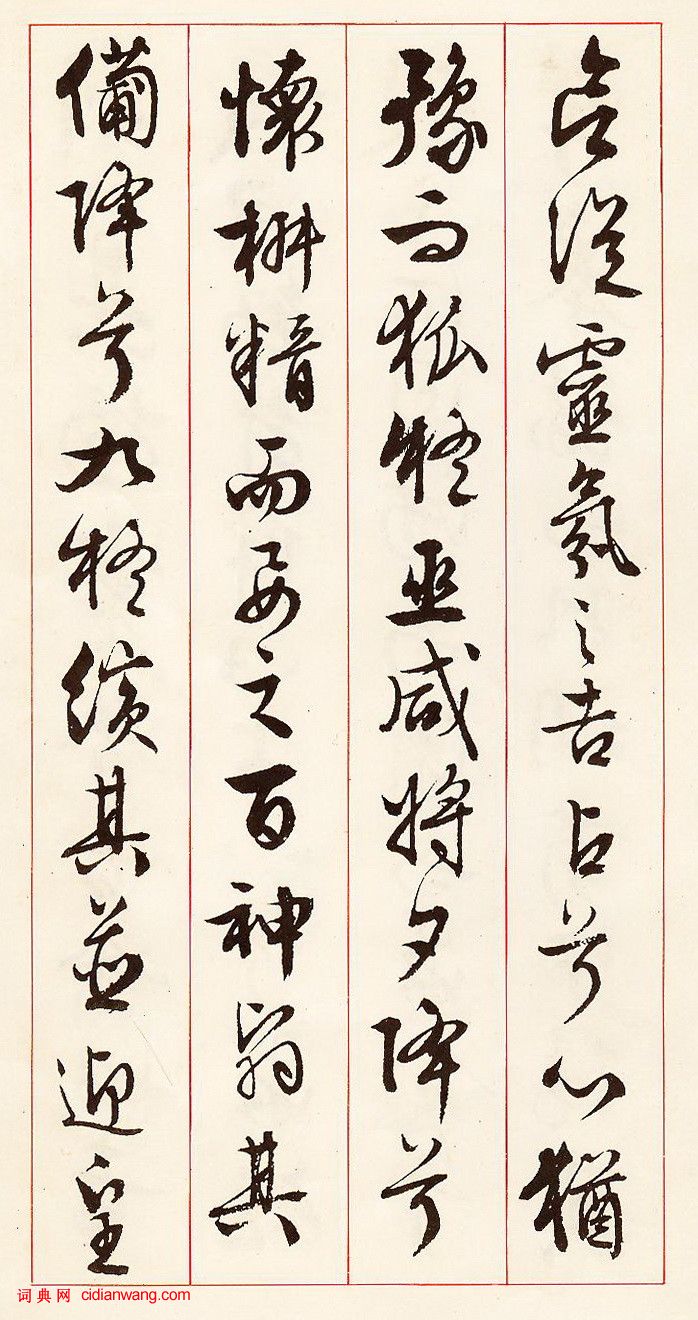 欲從靈氛之吉占兮心猶
豫而狐疑巫咸將夕降兮
懷椒糈而要之百神翳其
備降兮九疑繽其並迎皇
词典网 cidianwang.com